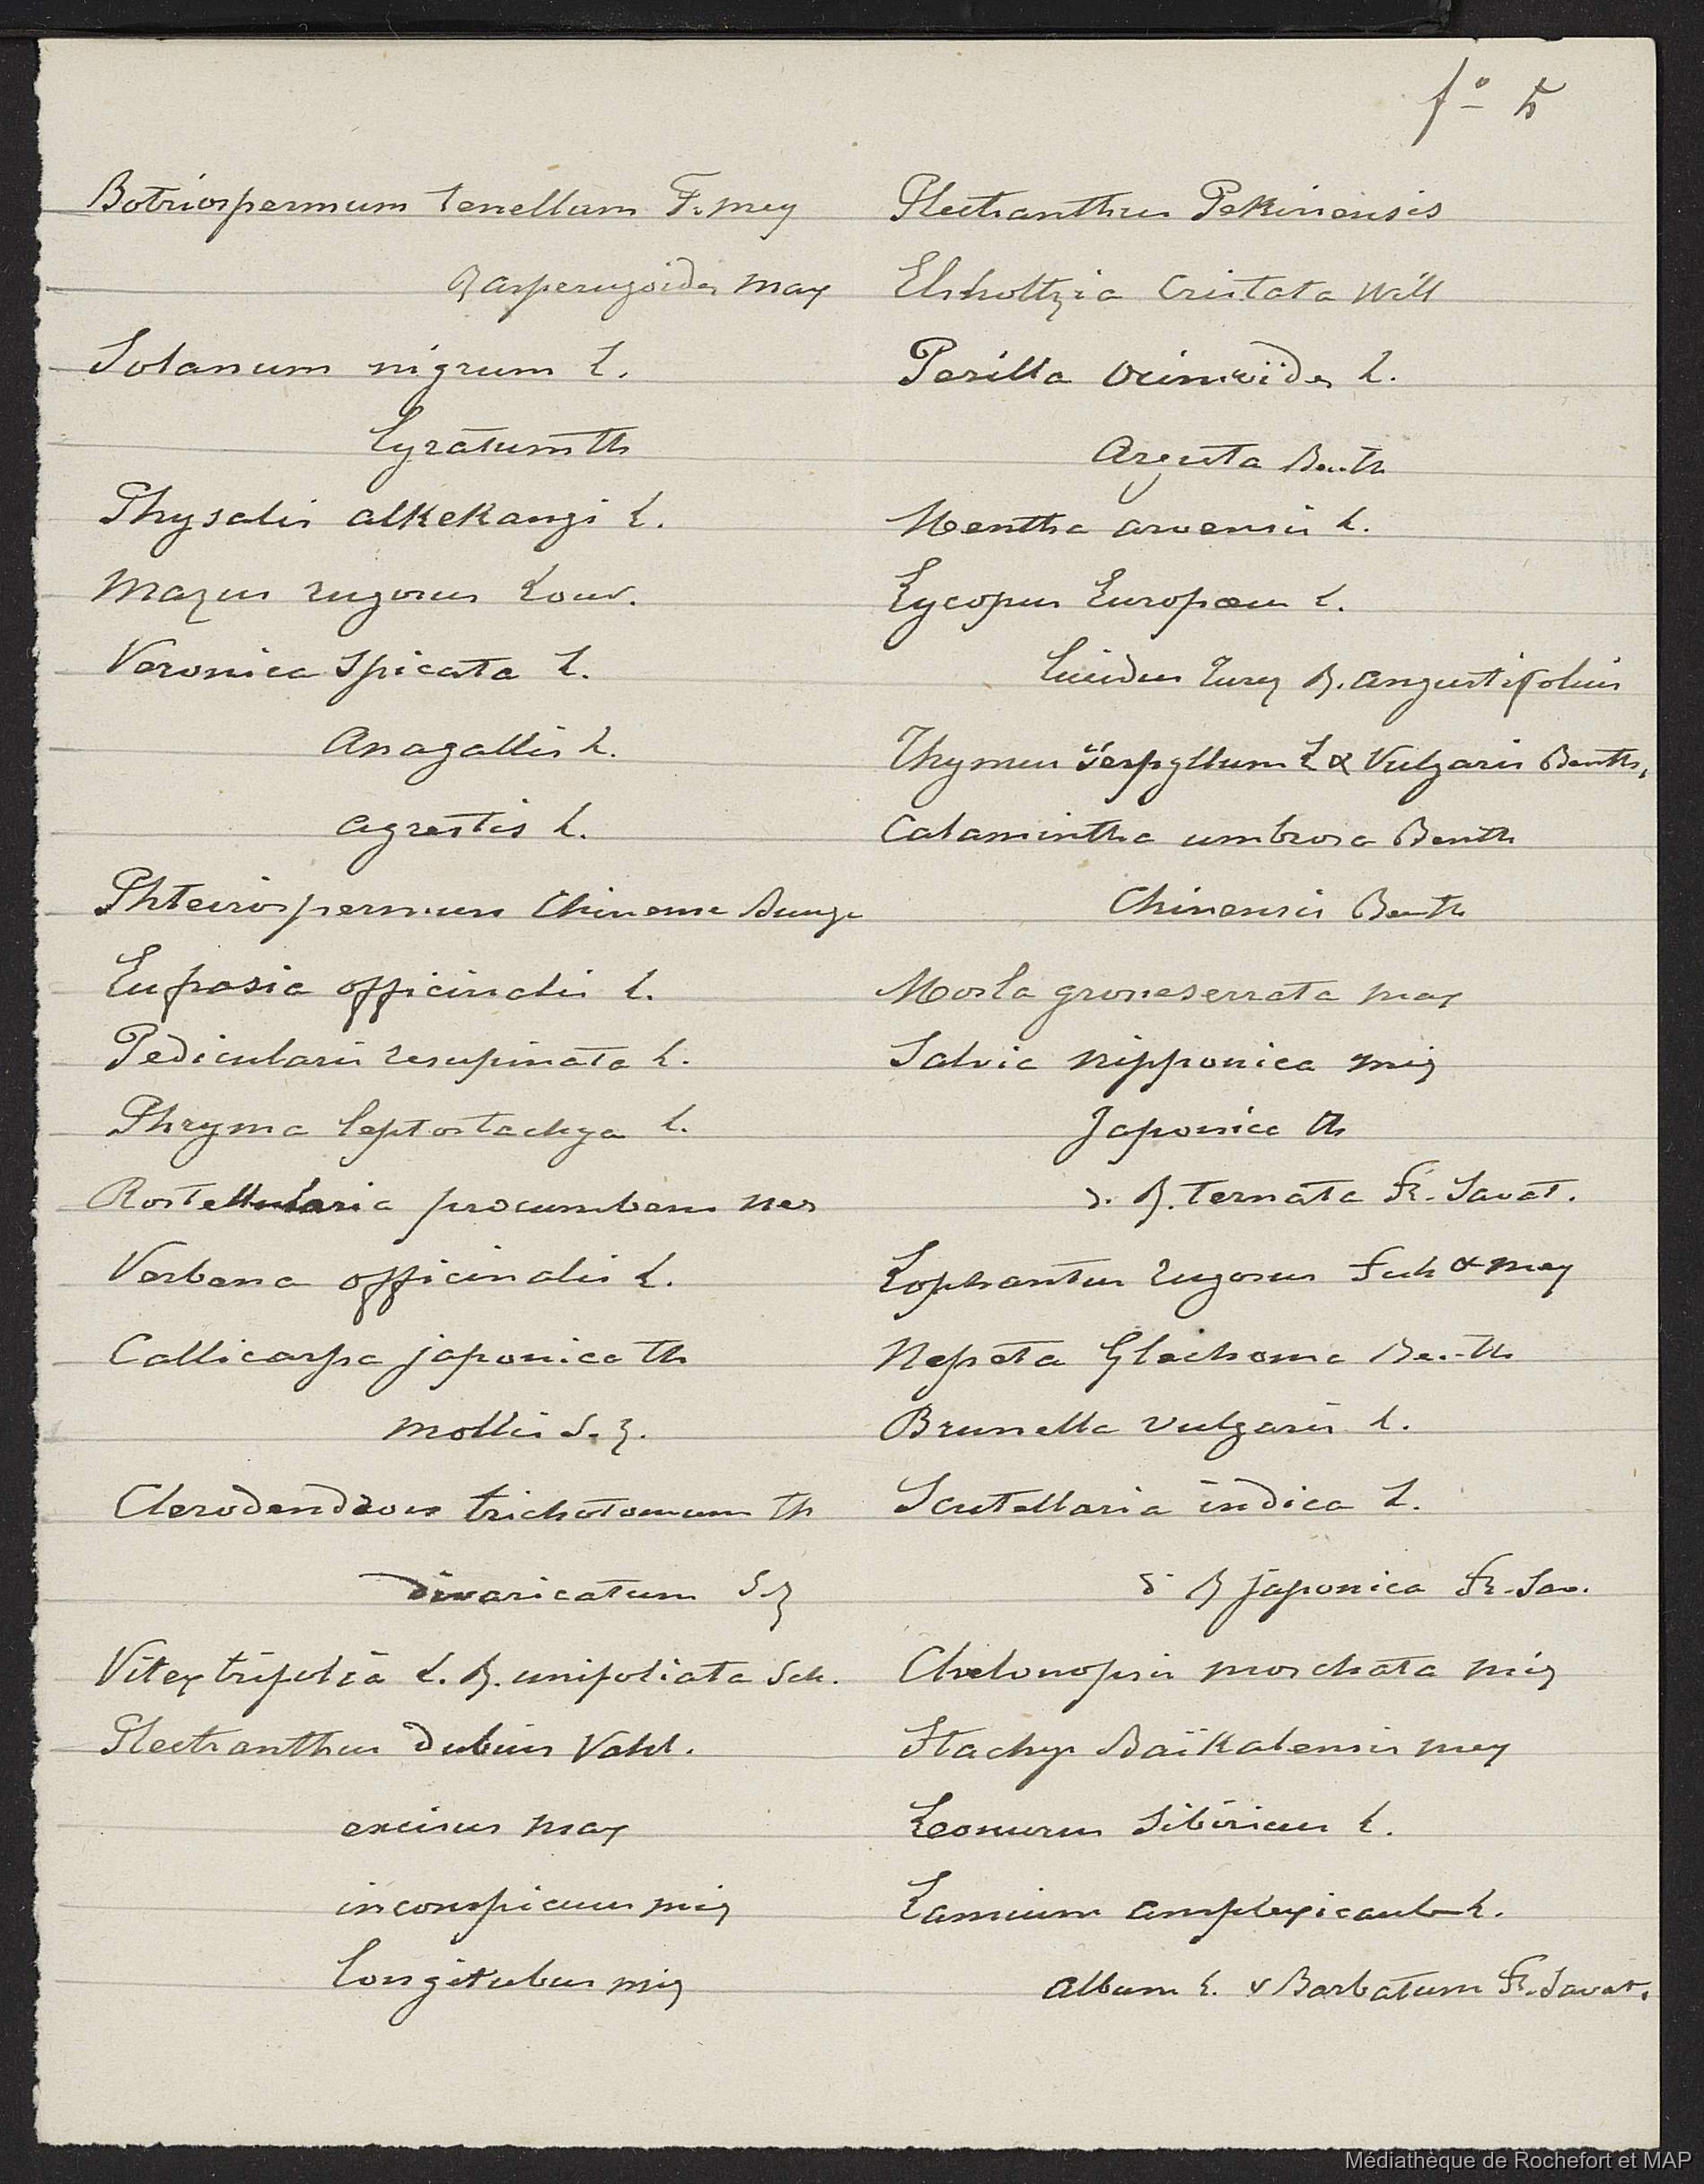 fo 5
Botriospermum tenellum F. mey
β asperugoides max
Solanum nigrum L.
lyratum th
Physalis alkekangi L.
Mazus rugosus Lour.
Veronica spicata L.
Anagallis L.
agrestis L.
Phteirospermum Chinense Bunge
Eufrasia officinalis L.
Pedicularis resupinata L.
Phryma leptostachya L.
Rostellularia procumbens nes
Verbena officinalis L.
Callicarpa japonica th
mollis S. z.
Clerodendron trichotomum th
divaricatum S z
Vitex trifolia L. β. unifoliata Sch.
Plectranthus dubius Vahl.
excisus max
inconspicuus miq
longitubus miq
Plectranthus Pekinensis
Elsholtzia Cristata Will
Perilla Ocimoïdes L.
Arguta Benth
Mentha arvensis L.
Lycopus Europæus L.
lucidus Turcz β. angustifolius
Thymus serpyllum L α Vulgaris Benth.
Calamintha umbrosa Benth
Chinensis Benth
Mosla groneserrata max
Salvia nipponica miq
Japonica th
d. β. ternata Fr. Savat.
Lophantus rugosus Fish & mey
Nepeta Glechoma Benth
Brunella vulgaris L.
Scutellaria indica L.
d β japonica Fr. Sav.
Chelonopsis moschata miq
Stachys Baïkalensis mey
Leonurus Sibiricus L.
Lamium amplexicaule L.
album L. v Barbatum Fr. Savat.
Médiathèque de Rochefort et MAP